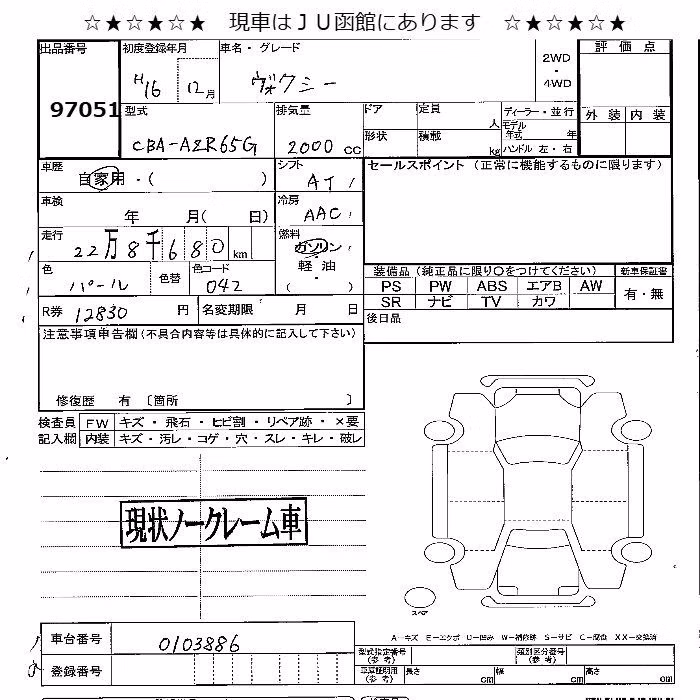 ☆★☆★☆★ 現車はＪＵ函館にあります ☆★☆★☆★
出品番号 初度登録年月 車名・グレード 2WD・4WD 評価点
97051 H16 12月 ヴォクシー
型式 排気量 ドア 定員 人 ディーラー・並行 外装 内装
CBA-AZR65G 2000 cc 形状 積載 kg モデル年式 年
ハンドル 左・右
車歴 シフト セールスポイント (正常に機能するものに限ります)
自家用・( ) AT
車検 冷房
年 月( 日) AAC
走行 燃料
22万8千680 km ガソリン
色 色替 色コード 軽油 装備品 (純正品に限り○をつけてください) 新車保証書
パール 042 ・( ) PS PW ABS エアB AW 有・無
SR ナビ TV カワ
R券 12830 円 名変期限 月 日 後日品
注意事項申告欄(不具合内容等は具体的に記入して下さい)
修復歴 有 〔箇所 〕
検査員 FW キズ・飛石・ヒビ割・リペア跡・×要
記入欄 内装 キズ・汚レ・コゲ・穴・スレ・キレ・破レ
現状ノークレーム車
スペア
A-キズ E-エクボ U-凹み W-補修跡 S-サビ C-腐食 XX-交換済
車台番号 0103886 型式指定番号(参考) 類別区分番号(参考)
登録番号 車庫証明用(参考) 長さ cm 幅 cm 高さ cm